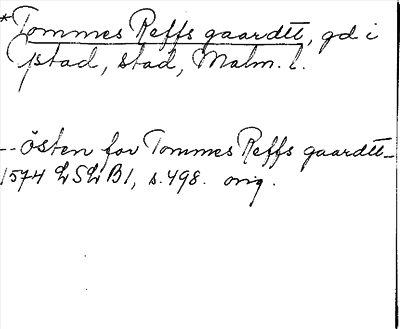 *Tommes Reffs gaardtt, gd i
Ystad, stad, Malm. l.
-- östen for Tommes Reffs gaardtt --
1574 LSLB1, s. 498. orig.